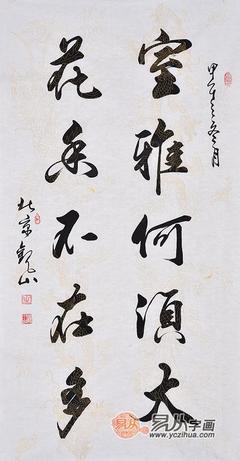 甲午之冬月
室雅何須大
花香不在多
北京觀山
易从字画
www.yczihua.com